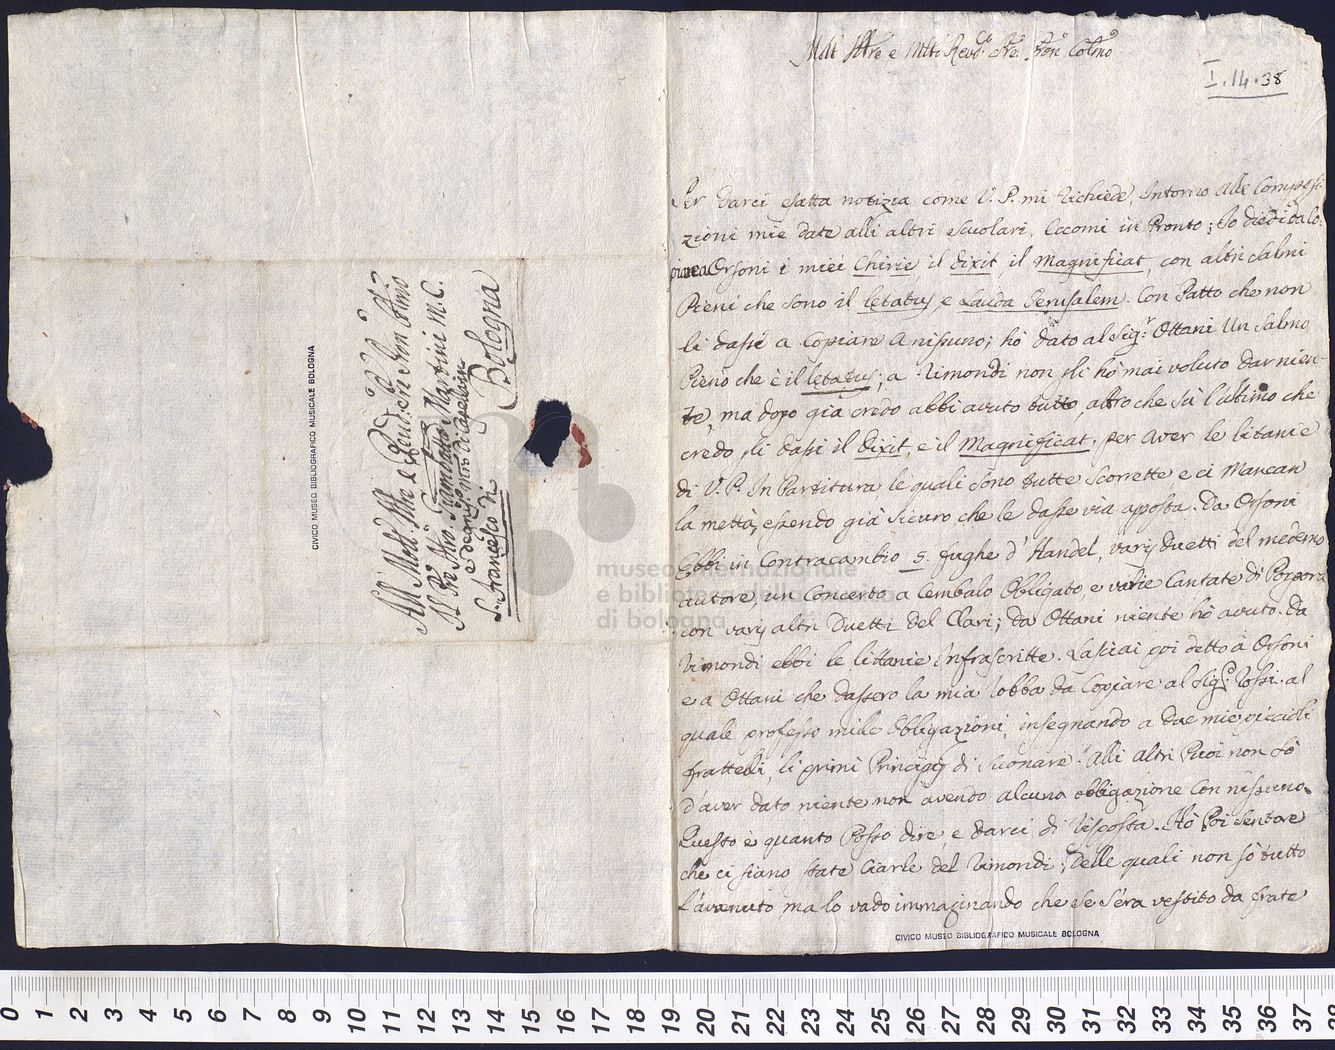 All Molt Illre e Revd. Pre Pron Colmo
Il Pre Mro. Giambatta Martini M.C.
e degnismo Mro di Capella in
S. Francesco di
Bologna
CIVICO MUSEO BIBLIOGRAFICO MUSICALE BOLOGNA
Molt Illre e Mlto Revdo Pre. Pron Colmo
I.14.38
Per darci esatta notizia come V. P. mi richiede, Intorno alle Composi-
zioni mie date alli altri Scuolari, Eccomi in Pronto; Io diedi da Co-
piare a Orsoni i miei Chirie il dixit il Magnificat, con altri Salmi
Pieni che sono il letatus, e Lauda Jerusalem. Con Patto che non
li dassi a Copiare a nissuno; hò dato al Sigr. Ottani Un Salmo
Pieno che è il letatus; a Rimondi non gli hò mai voluto dar nien-
te, ma dopo già credo abbi avuto tutto, altro che sù l'ultimo che
credo gli dassi il dixit, e il Magnificat. per aver le litanie
di V. P. In Partitura le quali sono tutte scorrette e ci Mancan
la mettà, essendo già sicuro che le dasse via apposta. Da Orsoni
Ebbi in Contracambio 5. fughe d'Handel, varij duetti del medemo
autore, un Concerto a Cembalo Obligato, e varie Cantate di Porpora
con varij altri Duetti del Clari; da Ottani niente hò avuto. Da
Rimondi ebbi le littanie Infrascritte. Lasciai poi detto à Orsoni
e a Ottani che dassero la mia robba da Copiare al Sigr. Rossi. al
quale professo mille Obbligazioni, insegnando a due mie piccioli
frattelli, li primi Principij di Suonare. Alli altri Puoi non sò
d'aver dato niente non avendo alcuna obbligazione Con nissuno.
Questo è quanto Posso dire, e darci di risposta. Hò Poi sentore
che ci siano state Ciarle del Rimondi; delle quali non sò tutto
l'avenuto, ma lo vado immaginando che se s'era vestito da frate
museo internazionale
e biblioteca della musica
di bologna
CIVICO MUSEO BIBLIOGRAFICO MUSICALE BOLOGNA
0 1 2 3 4 5 6 7 8 9 10 11 12 13 14 15 16 17 18 19 20 21 22 23 24 25 26 27 28 29 30 31 32 33 34 35 36 37 38